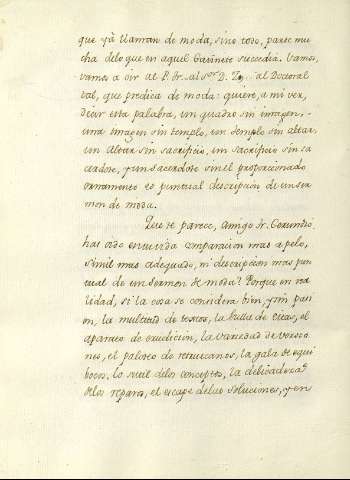 que yà llaman de moda, sino todo, parte mu
cha delo que en aquel Gavinete succedia. Vamos,
vamos a oir al P. Dr. al Sor. D. al Doctoral
tal, que predica de moda: quiere, a mi ver,
decir esta palabra, un quadro sin imagen,
una Imagen sin templo, un templo sin altar,
un Altar sin sacrificio, un sacrificio sin sa
cerdote, y un sacerdote sin el proporcionado
ornamento es puntual descripcion de un ser
mon de moda.
Que te parece, Amigo Dr.
has oido en tu vida comparacion mas a pelo,
simil mas adequado, ni descripcion mas pun
tual de un Sermon de moda? Porque en rea
lidad, si la cosa se considera bien, y sin pasi
on, la multitud de textos, la bulla de citas, el
aparato de erudicion, la variedad de versio
nes, el paloteo de retruecanos, la gala de equi
bocos, lo sutil delos conceptos, la delicadeza
delos reparos, el escape delas soluciones, y en